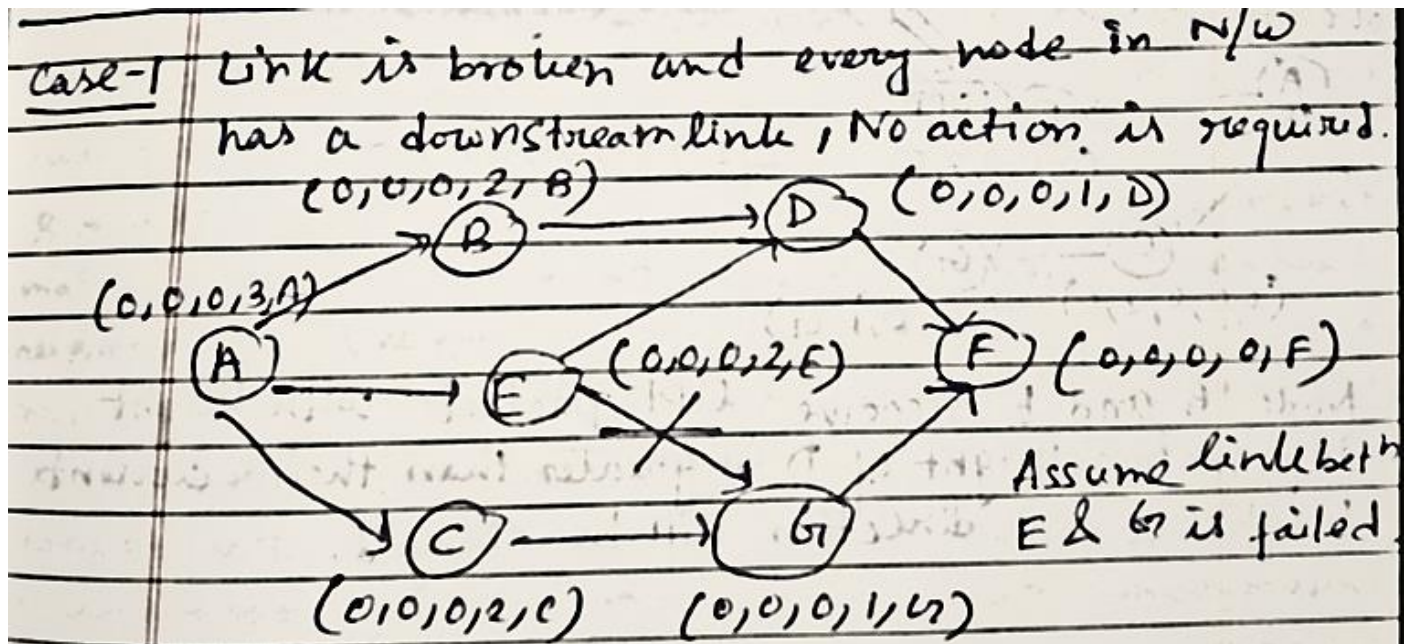 Case-1 Link is broken and every node in N/W
has a downstream link, No action is required.
(0,0,0,2,B)
(0,0,0,1,D)
B
D
(0,0,0,3,A)
A
E
(0,0,0,2,E)
F
(0,0,0,0,F)
Assume link betn
E & G is failed.
C
G
(0,0,0,2,C)
(0,0,0,1,G)